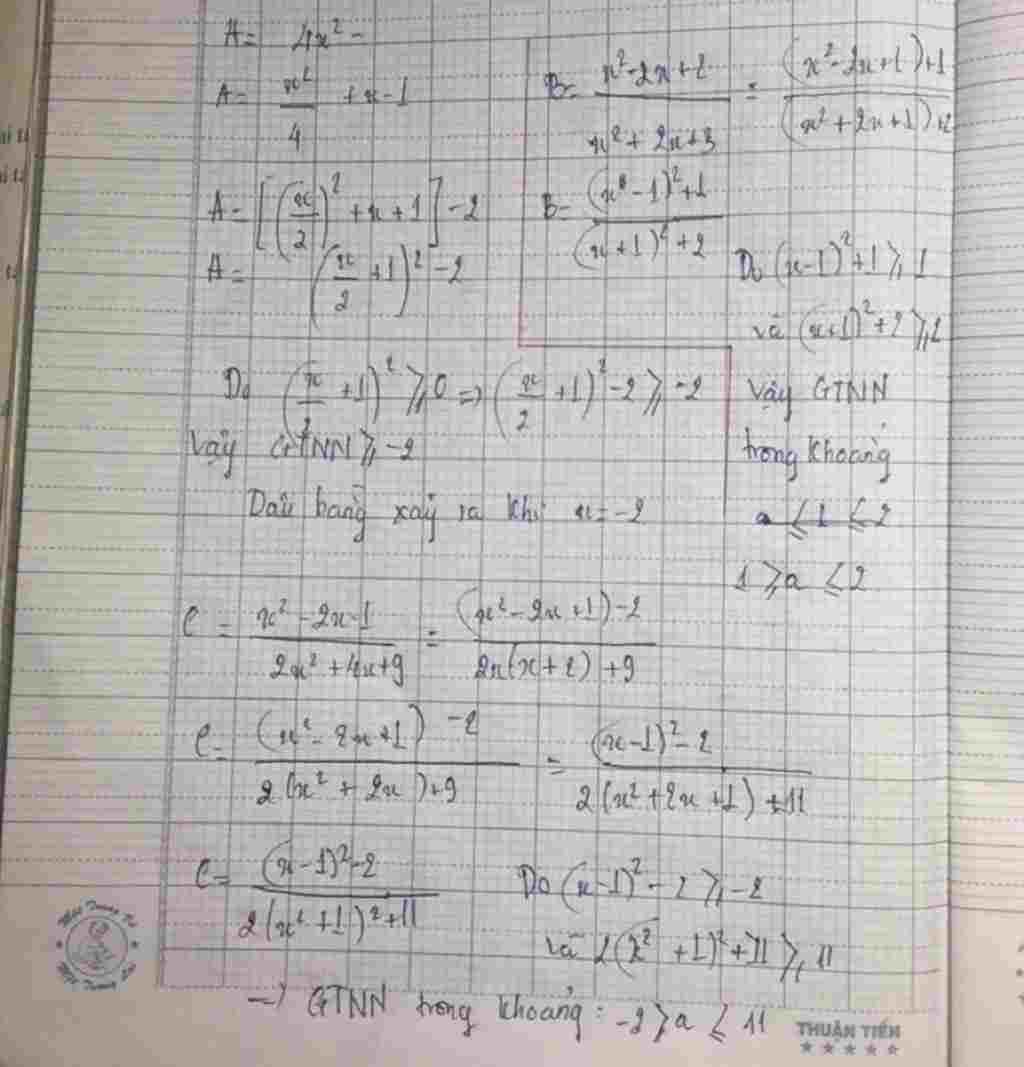 A = 4x² -
A = x²/4 + x - 1
A = [(x/2)² + x + 1] - 2
A = (x/2 + 1)² - 2
B = (x² - 2x + 2)/(x² + 2x + 3) = ((x² - 2x + 1) + 1)/((x² + 2x + 1) + 2)
B = ((x - 1)² + 1)/((x + 1)² + 2)
Do (x-1)² + 1 ⩾ 1
và (x+1)² + 2 ⩾ 2
Vậy GTNN
trong khoảng
a ⩽ 1 ⩽ 2
1 ⩾ a ⩽ 2
Do (x/2 + 1)² ⩾ 0 => (x/2 + 1)² - 2 ⩾ -2
Vậy GTNN ⩾ -2
Dấu bằng xảy ra khi x = -2
C = (x² - 2x - 1)/(2x² + 4x + 9) = ((x² - 2x + 1) - 2)/(2x(x + 2) + 9)
C = ((x² - 2x + 1) - 2)/(2(x² + 2x) + 9) = ((x - 1)² - 2)/(2(x² + 2x + 1) + 11)
C = ((x - 1)² - 2)/(2(x² + 1)² + 11)
Do (x - 1)² - 2 ⩾ -2
và 2(x² + 1)² + 11 ⩾ 11
-> GTNN trong khoảng: -2 ⩾ a ⩽ 11
THUẬN TIẾN